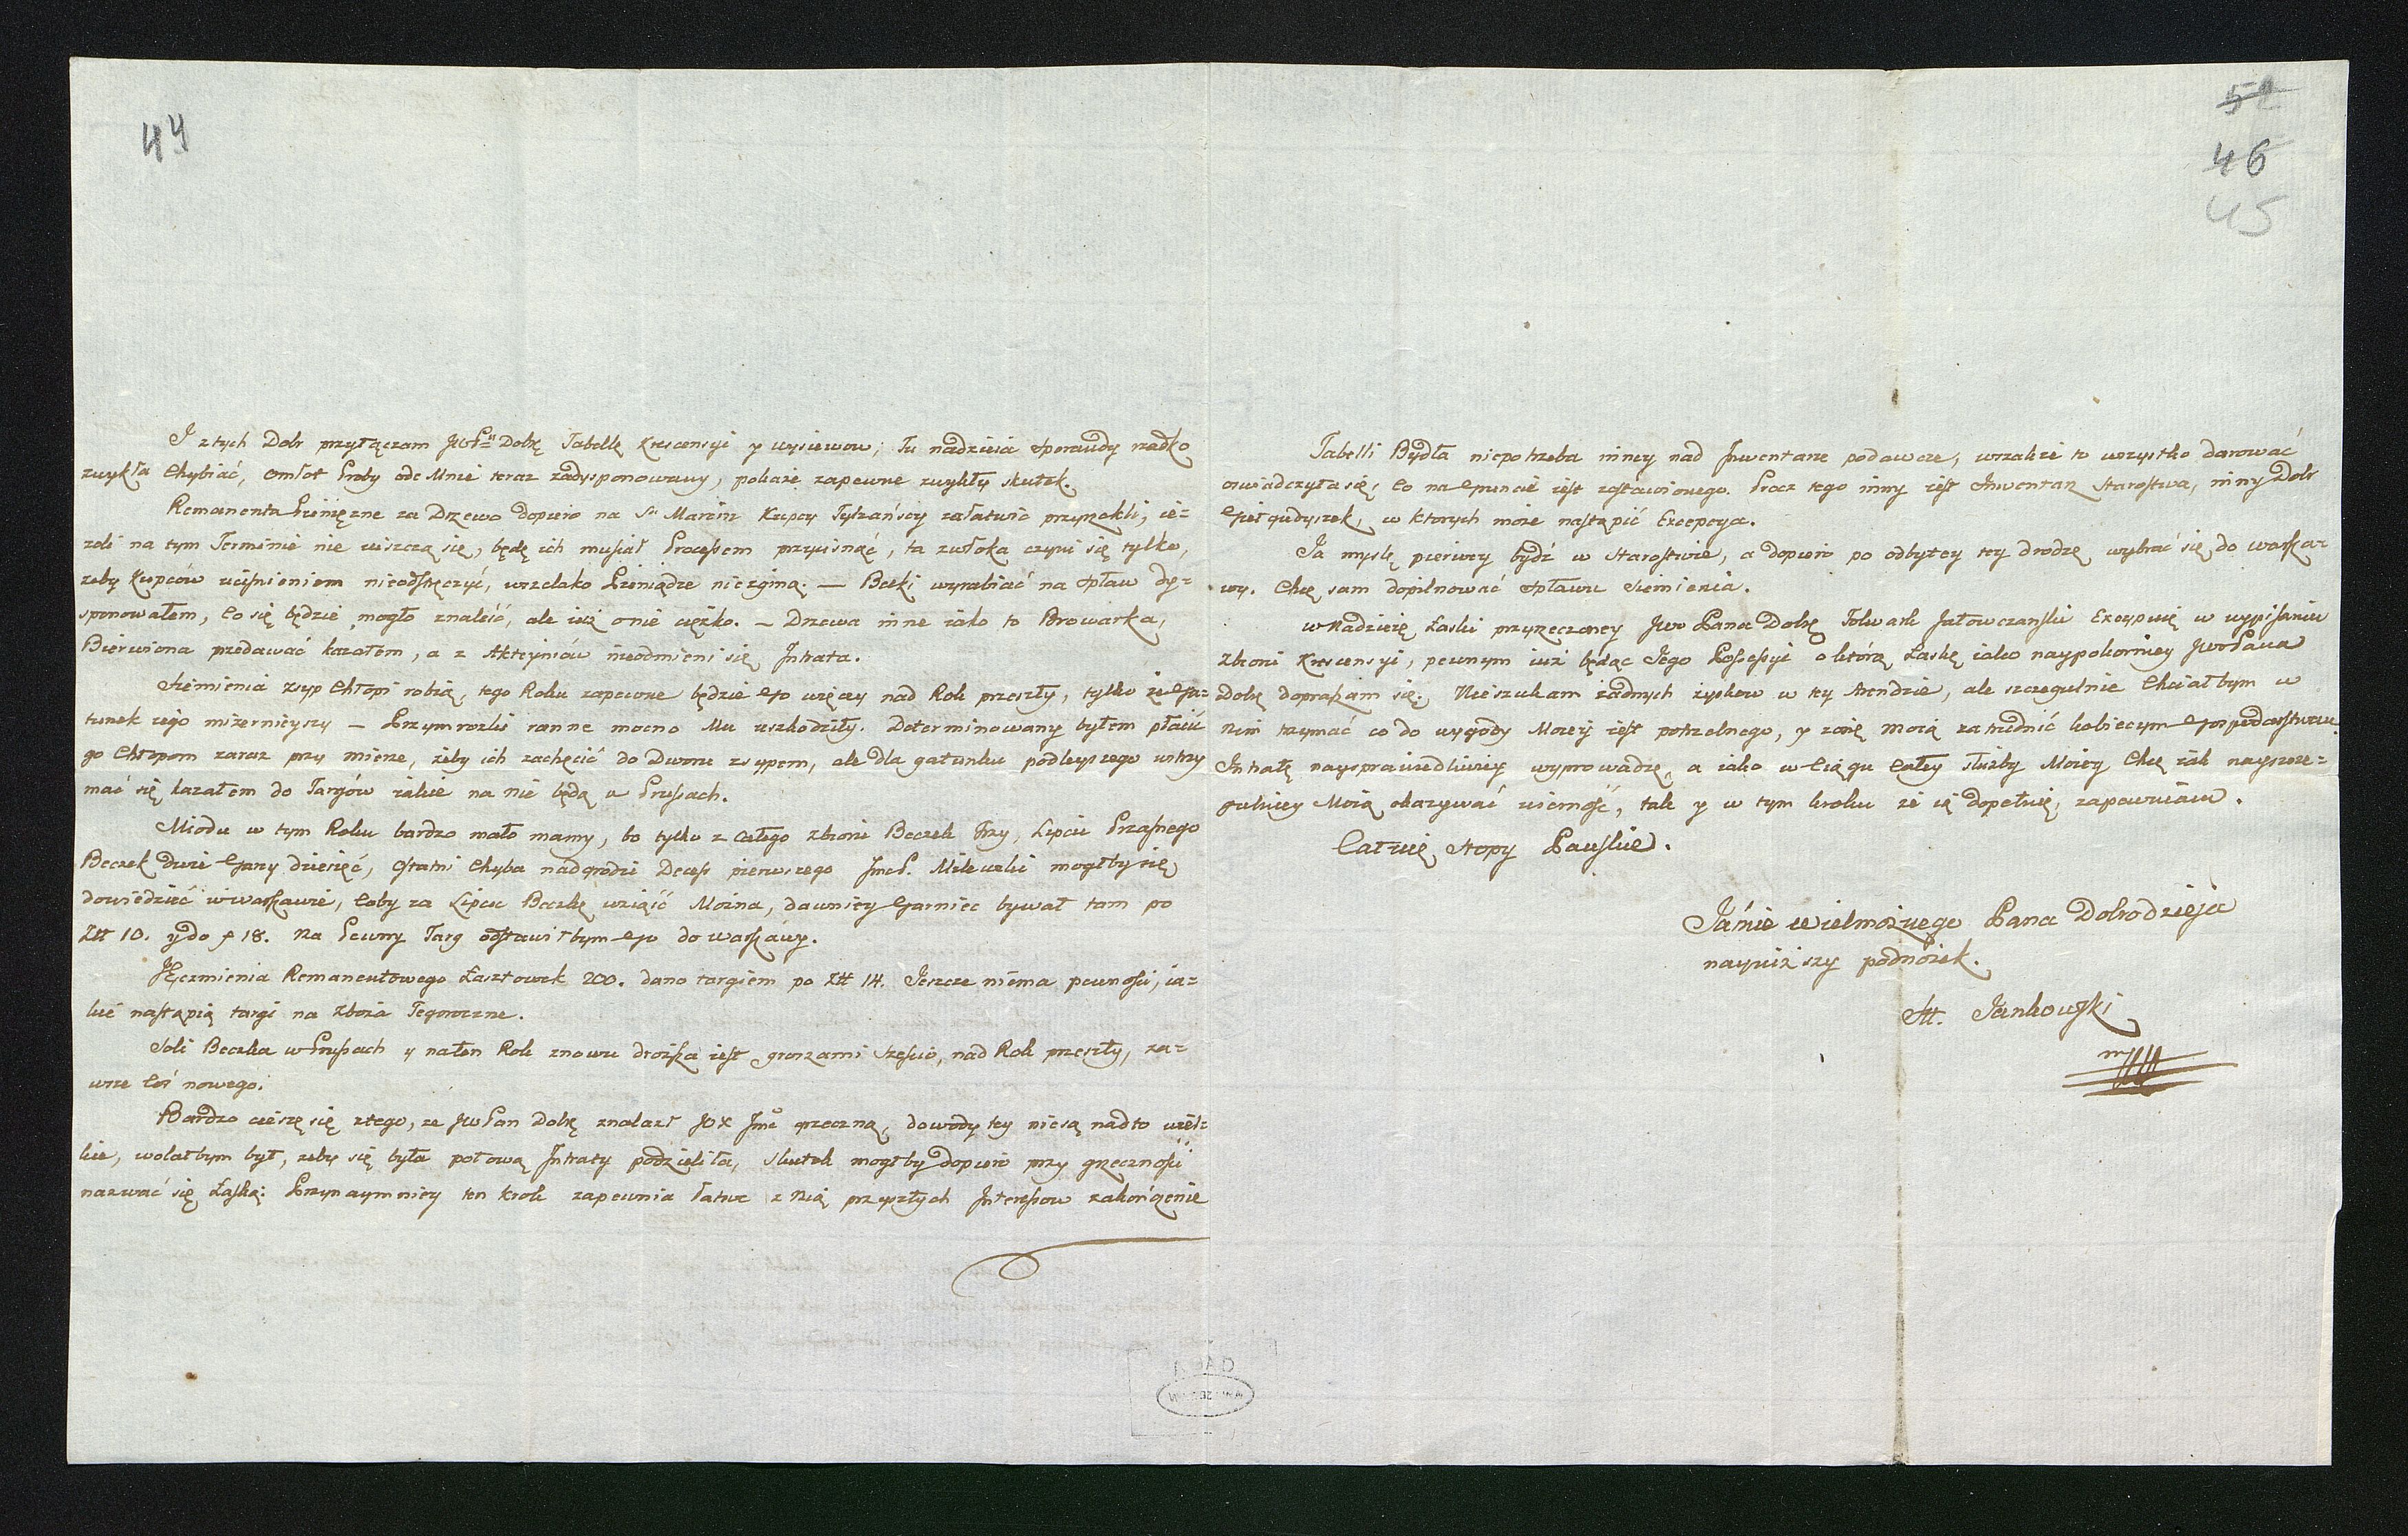 44
I z tych Dobr przyłączam JWPu Dobę Tabellę Krescensyi y wysiewow; Tu nadzieia Sporaudy rzadko
zwykła Chybiać, omłot Proby ode Mnie teraz zadysponowany, pokaże zapewne zwykły skutek.
Remanenta Pieniężne za Drzewo dopiero na Su Marcin Kupcy Tylzańscy załatwić przyrzekli, ie=
zeli na tym Terminie nie uiszczą się, będę ich musiał Processem przycisnąć, ta zwłoka czyni się tylko,
zeby Kupców uciśnieniem nieodstręczyć, wszelako Pieniądze niezginą. — Belki wyrabiać na Spław dy=
sponowałem, Co się będzie mogło znaleść, ale iuż o nie ciężko. — Drzewa inne iako to Browarka,
Bierwiona przedawać kazałem, a z Aktcyinśow nieodmieni się Intrata.
Siemienia zsyp Chłopi robią, tego Roku zapewne będzie Go więcey nad Rok przeszły, tylko że Ga=
tunek iego mizernieyszy — Przymrozki ranne mocno Mu uszkodziły. Determinowany byłem płacić
go Chłopom zaraz przy mierze, żeby ich zachęcić do Dworu zsypem, ale dla gatunku podleyszego wstrzy
mać się kazałem do Targów iakie na nie będą w Prusach.
Miodu w tym Roku bardzo mało mamy, bo tylko z całego zbioru Beczek Trzy, Lipcu Przasnego
Beczek Dwie Gary dziesięć, Ostatni Chyba nadgrodzi Decess pierwszego JmcP. Milewski mogłby się
dowiedzieć w warszawie, Coby za Lipiec Beczkę wziąść Można, dawniey Garniec bywał tam po
Ztt 10. y do f 18. Na Pewny Targ odstawiłbym Go do warszawy.
Jęczmienia Remanentowego Łasztowek 200. dano targiem po Ztt 14. Jeszcze niema pewności, ia=
kie nastąpią targi na zboża Tegoroczne.
Soli Beczka w Prusach y na ten Rok znowu droższa iest groszami Sześcio, nad Rok przeszły, za=
wsze Coś nowego.
Bardzo cieszę się z tego, ze JWPan Dobę znalazł JOX Jmć grzeczną, dowody tey nie są nadto wiel=
kie, wolałbym był, zeby się była połową Intraty podzieliła, skutek mogłby dopiero przy grzecznosci
nazwać się Łaską: Przynaymniey ten krok zapewnia łatwe z Nią przyszłych Interessow zakończenie
52
46
45
Tabelli Bydła niepotrzeba inney nad Inwentarze podawcze, wszakże to wszystko darować
oswiadczyła się, Co na Gruncie iest zostawionego. Procz tego inny iest Inwentarz Starostwa, inny Dobr
Giełgudyszek, w ktorych może nastąpić Excepcya.
Ja myslę pierwey bydź w Starostwie, a dopiero po odbytey tey drodze, wybrać się do warsza=
wy. Chcę sam dopilnować Spławu Siemienia.
W Nadzieię Łaski przyrzeczoney JWo Pana Dobę Folwark Jałowczański Excypuię w wypisaniu
Zbioru Krescensyi, pewnym iuż będąc Jego Possessyi o którą Łaskę iako naypokorniey JWoPana
Dobę dopraszam się. Nieszukam żadnych zyskow w tey Arendzie, ale szczegulnie Chciałbym w
Nim trzymać co do wygody Moiey iest potrzebnego, y zonę moią zatrudnić kobiecym Gospodarstwem
Intratę naysprawiedliwiey wyprowadzę, a iako w Ciągu Całey służby Moiey Chcę iak nayszcze=
gulniey Moią okazywać wierność, tak y w tym kroku że ią dopełnię, zapewniam.
Całuię Stopy Pańskie.
Jaśnie wielmożnego Pana Dobrodzieja
nayniższy podnóżek.
Jankowski